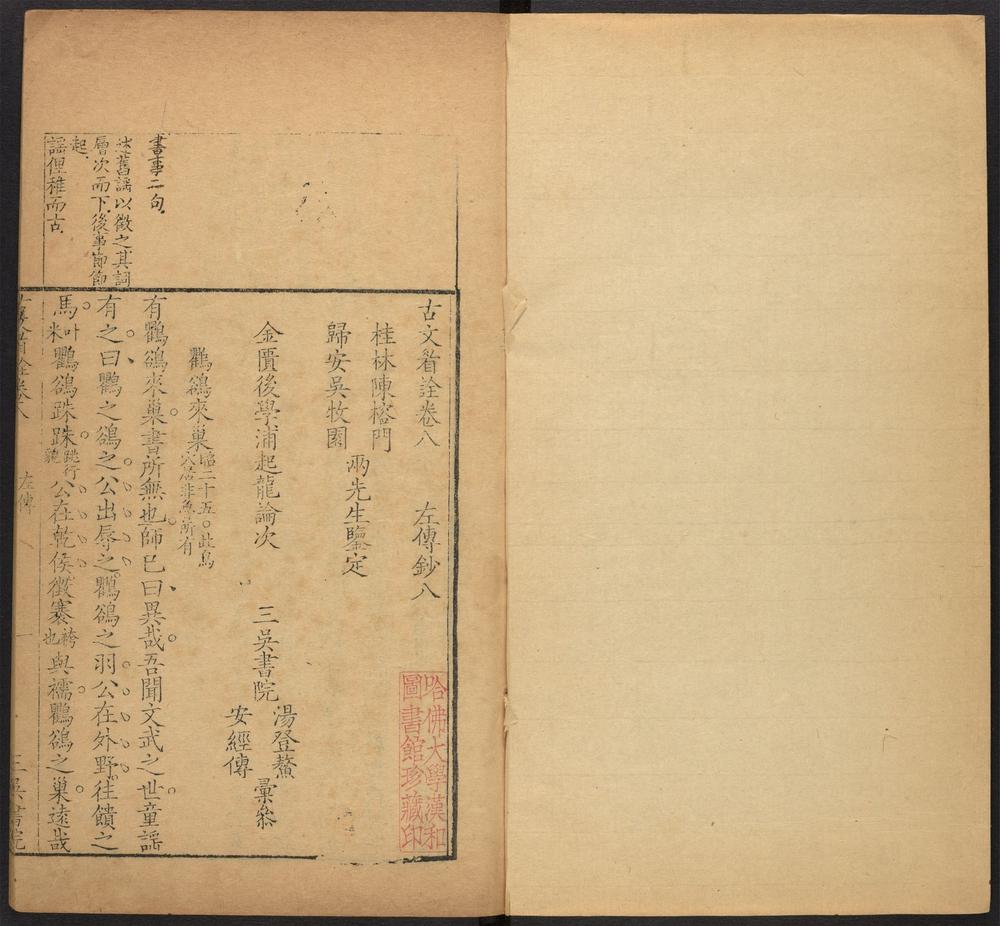 書事二句
述舊謡以徵之其詞
層次而下後事節節
起
謡俚稚而古
古文眉詮卷八　左傳鈔八
桂林陳榕門
歸安吳牧園
兩先生鑒定
金匱後學浦起龍論次　三吳書院
湯登鼇
安經傳
彙叅
鸜鵒來巢昭二十五○此鳥
穴居非魯所有
有鸜鵒來巢書所無也師已曰異哉吾聞文武之世童謡
有之曰鸜之鵒之公出辱之鸜鵒之羽公在外野往饋之
馬叶
米鸜鵒跦跦跳行
貌公在乾侯徵褰袴
也與襦鸜鵒之巢遠哉
左傳
一
三吳書院
哈佛大學漢和
圖書館珍藏印